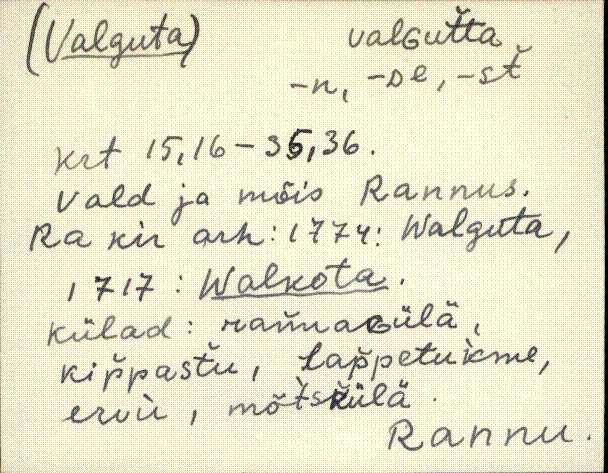 (Valguta) valGut̆ta
-n, -De, -st̆
krt 15,16 – 35,36.
Vald ja mõis Rannus.
Ra kir arh: 1774: Walguta,
1717: Walkota.
külad: ran̆naGülä,
kip̆pastu, Lap̆petukme,
ervù, mõ̀tskülä.
Rannu.